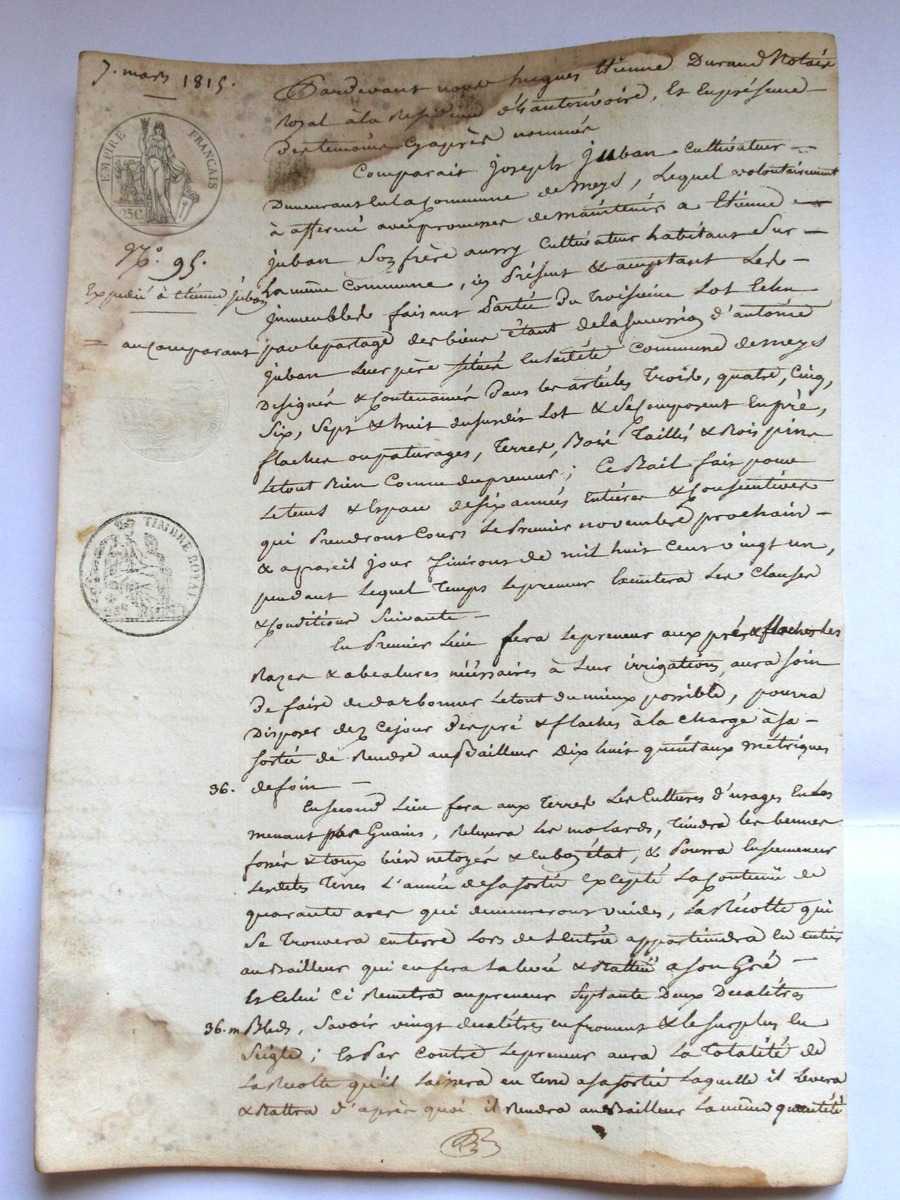 7. mars 1815.
Pardevant nous hugues Etienne Durand Notaire
Royal à la Residence d'hauterivoire, Et En présence
Des temoins Cy après nommés
Comparait Joseph Juban Cultivateur
Demeurant En la Commune de meys, Lequel volontairement
à affermé avec promesse de maintenir a Etienne
Juban Son frère aussy Cultivateur habitant Sur
La même Commune, ici Présent & acceptant Les
immeubles faisant Partie Du Troisieme Lot Echu
= au Comparant par le partage des biens étant de la Succession d'antoine
Juban Leur père Situés En laditte Commune de meys
Designés & Contenancés Dans les articles Trois, quatre, Cinq,
Six, Sept & huit du susdit Lot & Se Composent En pré,
flaches ou paturages, Terres, Bois Taillis & Bois pins
Le tout Bien Connu du preneur; Ce Bail fait pour
Le tems & Espace de six années Entières & Consecutives
qui Prendront Cours Le Premier novembre prochain
& a pareil jour finiront de mil huit Cent vingt un,
pendant Lequel Temps Le preneur Executera Les Clauses
& Conditions Suivante
En Premier Lieu fera Le preneur aux prés & flaches les
Razes & abealures nécissaires à Leur irrigation, aura soin
De faire Le tout du mieux possible, pourra
Disposer dez Ce jour Des pré & flaches à la charge à sa
Sortie de Rendre au Bailleur Dix huit quintaux métriques
36. de foin
En second Lieu fera aux Terres Les Cultures d'usages En Les
menant par Guains, Relevera Les molards, Tiendra les
fossés & toux bien netoyés & En bon état, & Pourra Ensemencer
Lesdites Terres L'année de sa sortie Excepté La Contenue de
quarante ares qui demeureront vuides, La Récolte qui
Se Trouvera en terre Lors de L'Entrée appartiendra En entier
au Bailleur qui en fera La levée & Battue a son Gré
Et Celui Ci Remettra au preneur Septante Deux Decalitres
36.m Bleds, Savoir vingt decalitres en froment & le surplus En
Seigle; Et Par Contre Le preneur aura La Totalité de
La Recolte qu'il Laissera en Terre a sa sortie Laquelle il Levera
& Battra D'après quoi il Rendra au Bailleur La même quantité
EMPIRE FRANÇAIS
25C
N.° 95.
Expedié à Etienne Juban
TIMBRE ROYAL